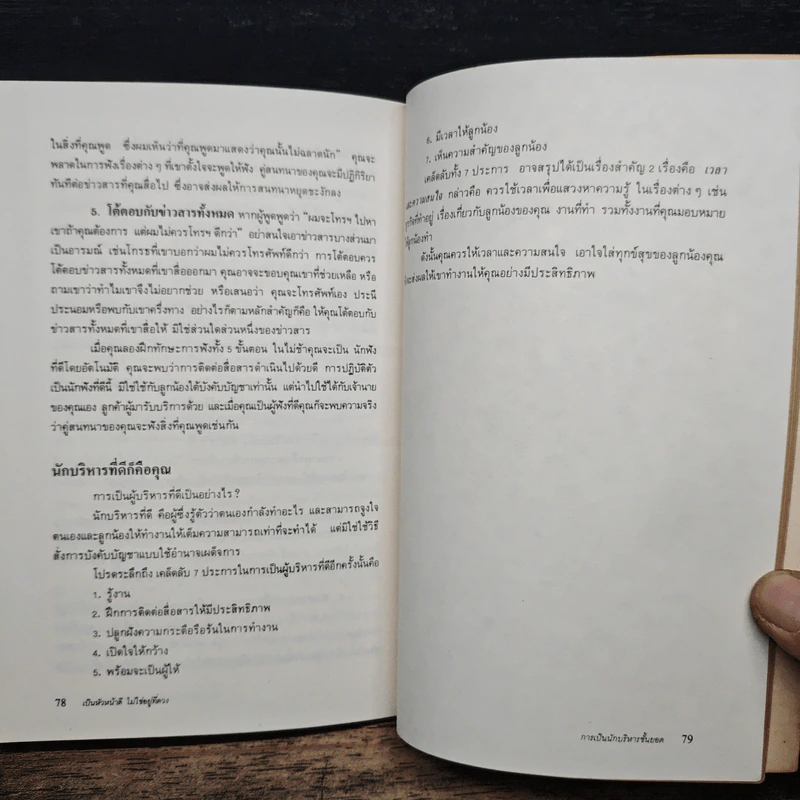 ในสิ่งที่คุณพูด ซึ่งผมเห็นว่าที่คุณพูดมาแสดงว่าคุณนั้นไม่ฉลาดนัก" คุณจะ
พลาดในการฟังเรื่องต่าง ๆ ที่เขาตั้งใจจะพูดให้ฟัง คู่สนทนาของคุณจะมีปฏิกิริยา
ทันทีต่อข่าวสารที่คุณสื่อไป ซึ่งอาจส่งผลให้การสนทนาหยุดชะงักลง
5. โต้ตอบกับข่าวสารทั้งหมด หากผู้พูดพูดว่า "ผมจะโทรฯ ไปหา
เขาถ้าคุณต้องการ แต่ผมไม่ควรโทรฯ ดีกว่า" อย่าสนใจเอาข่าวสารบางส่วนมา
เป็นอารมณ์ เช่นโกรธที่เขาบอกว่าผมไม่ควรโทรศัพท์ดีกว่า การโต้ตอบควร
โต้ตอบข่าวสารทั้งหมดที่เขาสื่อออกมา คุณอาจจะขอบคุณเขาที่ช่วยเหลือ หรือ
ถามเขาว่าทำไมเขาจึงไม่อยากช่วย หรือเสนอว่า คุณจะโทรศัพท์เอง ประนี
ประนอมหรือพบกับเขาครึ่งทาง อย่างไรก็ตามหลักสำคัญก็คือ ให้คุณโต้ตอบกับ
ข่าวสารทั้งหมดที่เขาสื่อให้ มิใช่ส่วนใดส่วนหนึ่งของข่าวสาร
เมื่อคุณลองฝึกทักษะการฟังทั้ง 5 ขั้นตอน ในไม่ช้าคุณจะเป็น นักฟัง
ที่ดีโดยอัตโนมัติ คุณจะพบว่าการติดต่อสื่อสารดำเนินไปด้วยดี การปฏิบัติตัว
เป็นนักฟังที่ดีนี้ มิใช่ใช้กับลูกน้องใต้บังคับบัญชาเท่านั้น แต่นำไปใช้ได้กับเจ้านาย
ของคุณเอง ลูกค้าผู้มารับบริการด้วย และเมื่อคุณเป็นผู้ฟังที่ดีคุณก็จะพบความจริง
ว่าคู่สนทนาของคุณจะฟังสิ่งที่คุณพูดเช่นกัน
นักบริหารที่ดีก็คือคุณ
การเป็นผู้บริหารที่ดีเป็นอย่างไร ?
นักบริหารที่ดี คือผู้ซึ่งรู้ตัวว่าตนเองกำลังทำอะไร และสามารถจูงใจ
ตนเองและลูกน้องให้ทำงานให้เต็มความสามารถเท่าที่จะทำได้ แต่มิใช่ใช้วิธี
สั่งการบังคับบัญชาแบบใช้อำนาจเผด็จการ
โปรดระลึกถึง เคล็ดลับ 7 ประการในการเป็นผู้บริหารที่ดีอีกครั้งนั้นคือ
1. รู้งาน
2. ฝึกการติดต่อสื่อสารให้มีประสิทธิภาพ
3. ปลูกฝังความกระตือรือร้นในการทำงาน
4. เปิดใจให้กว้าง
5. พร้อมจะเป็นผู้ให้
78 เป็นหัวหน้าดี ไม่ใช่อยู่ที่ดวง
6. มีเวลาให้ลูกน้อง
7. เห็นความสำคัญของลูกน้อง
เคล็ดลับทั้ง 7 ประการ อาจสรุปได้เป็นเรื่องสำคัญ 2 เรื่องคือ เวลา
และความสนใจ กล่าวคือ ควรใช้เวลาเพื่อแสวงหาความรู้ ในเรื่องต่าง ๆ เช่น
ที่ทำอยู่ เรื่องเกี่ยวกับลูกน้องของคุณ งานที่ทำ รวมทั้งงานที่คุณมอบหมาย
ลูกน้องทำ
ดังนั้นคุณควรให้เวลาและความสนใจ เอาใจใส่ทุกข์สุขของลูกน้องคุณ
จะส่งผลให้เขาทำงานให้คุณอย่างมีประสิทธิภาพ
การเป็นนักบริหารชั้นยอด 79